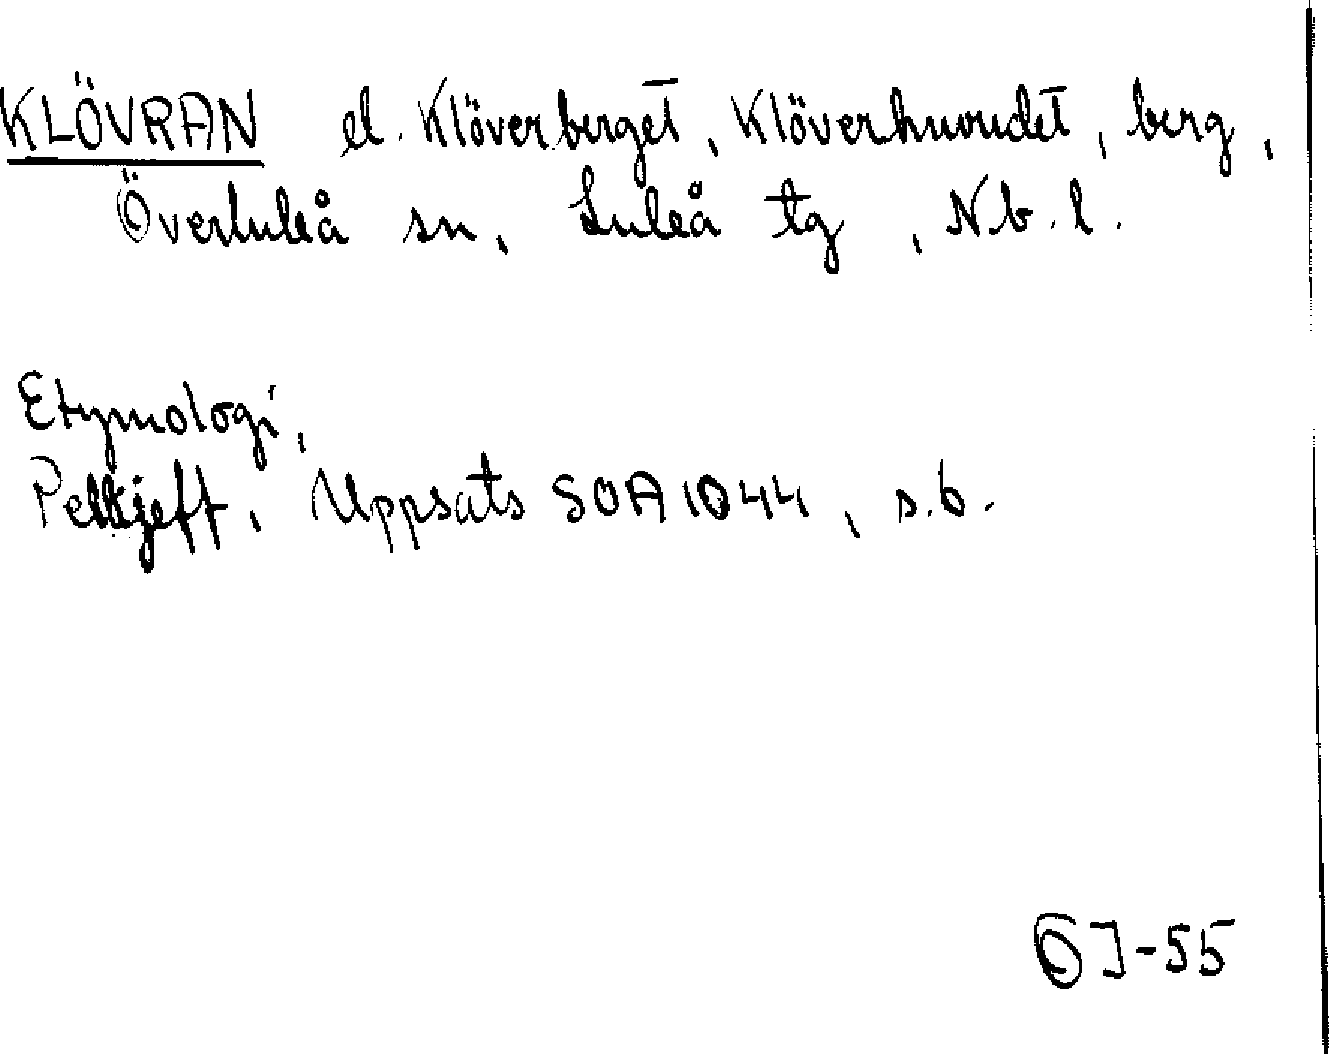 KLÖVRAN el. Klöverberget, Klöverhuvudet, berg,
Överluleå sn, Luleå tg, Nb. l.
Etymologi,
Uppsats SOA 1044, s. 6.
ÖJ-55